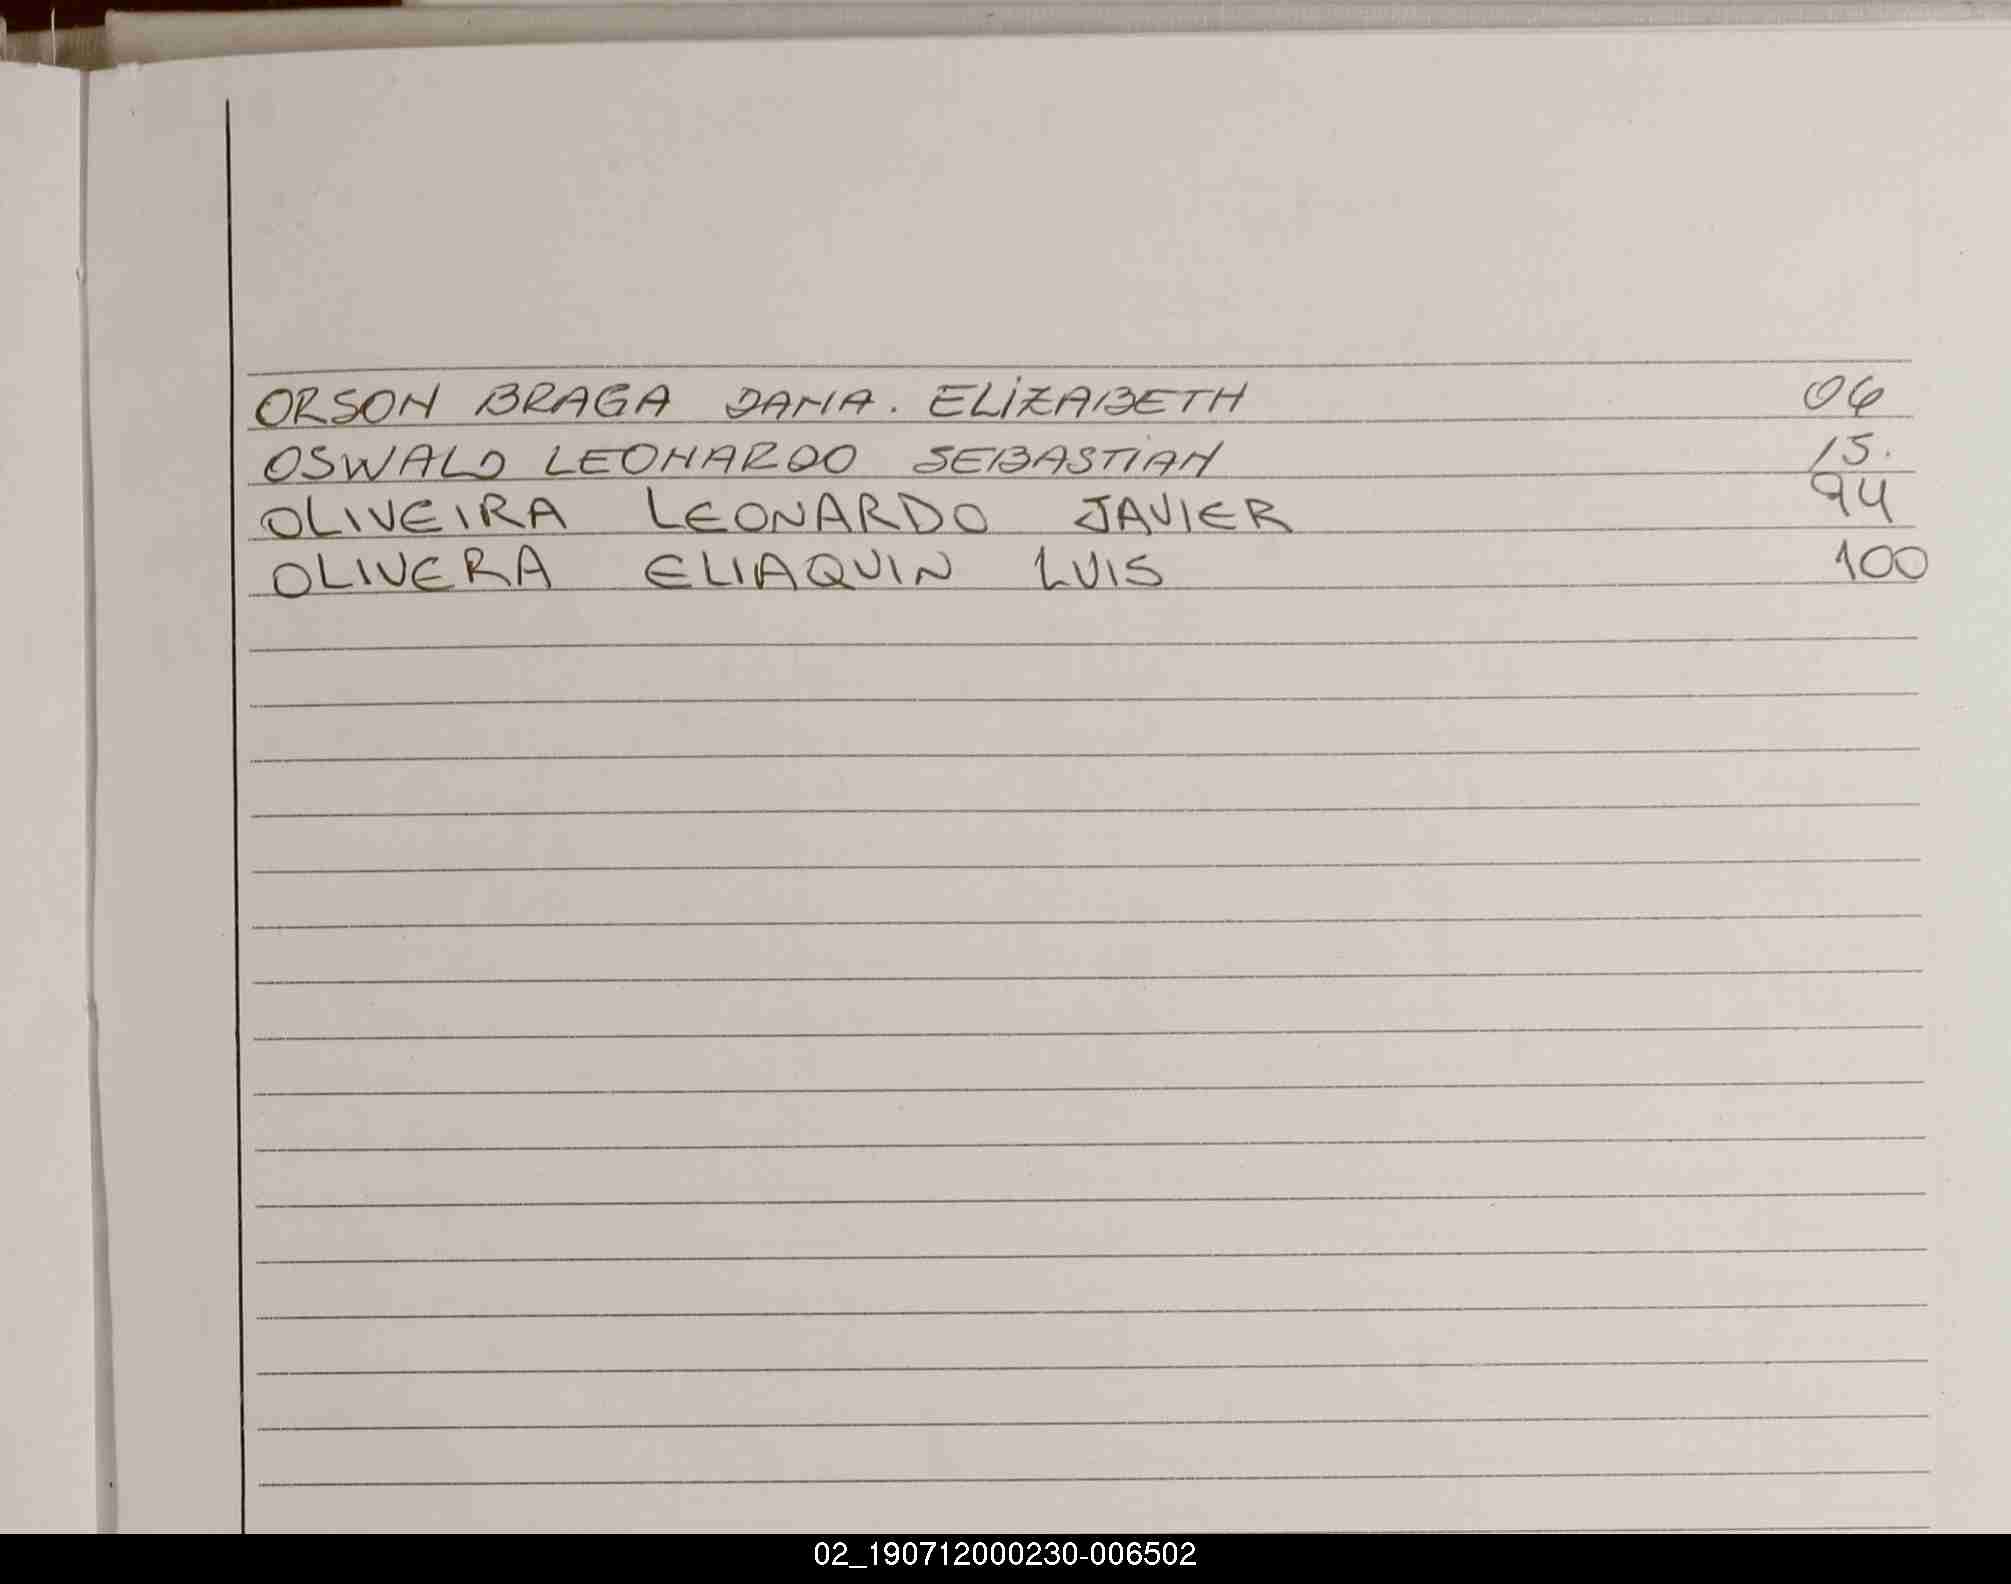 ORSON BRAGA DANA. ELIZABETH 06
OSWALD LEONARDO SEBASTIAN 15.
OLIVEIRA LEONARDO JAVIER 94
OLIVERA ELIAQUIN LUIS 100
02_190712000230-006502